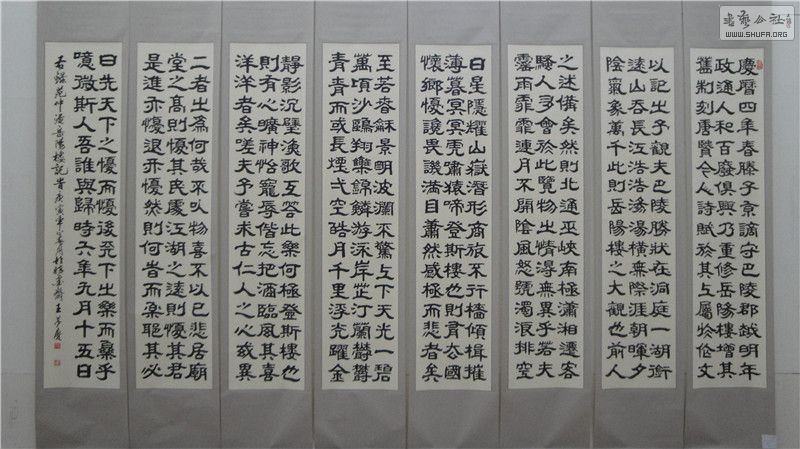 慶曆四年春滕子京謫守巴陵郡越明年
政通人和百廢俱興乃重修岳陽樓增其
舊制刻唐賢今人詩賦於其上屬於作文
以記之予觀夫巴陵勝狀在洞庭一湖銜
遠山吞長江浩浩湯湯橫無際涯朝暉夕
陰氣象萬千此則岳陽樓之大觀也前人
之述備矣然則北通巫峽南極瀟湘遷客
騷人多會於此覽物之情得無異乎若夫
霪雨霏霏連月不開陰風怒號濁浪排空
日星隱耀山嶽潛形商旅不行檣傾楫摧
薄暮冥冥虎嘯猿啼登斯樓也則有去國
懷鄉憂讒畏譏滿目蕭然感極而悲者矣
至若春龢景明波瀾不驚上下天光一碧
萬頃沙鷗翔集錦鱗游泳岸芷汀蘭鬱鬱
青青而或長煙弌空皓月千里浮光躍金
靜影沉璧漁歌互答此樂何極登斯樓也
則有心曠神怡寵辱偕忘把酒臨風其喜
洋洋者矣嗟夫予嘗求古仁人之心或異
二者之為何哉不以物喜不以己悲居廟
堂之高則憂其民處江湖之遠則憂其君
是進亦憂退亦憂然則何時而樂耶其必
曰先天下之憂而憂後天下之樂而樂乎
噫微斯人吾誰與歸時六年九月十五日
右錄范仲淹岳陽樓記
書藝公社
WWW.SHUFA.ORG